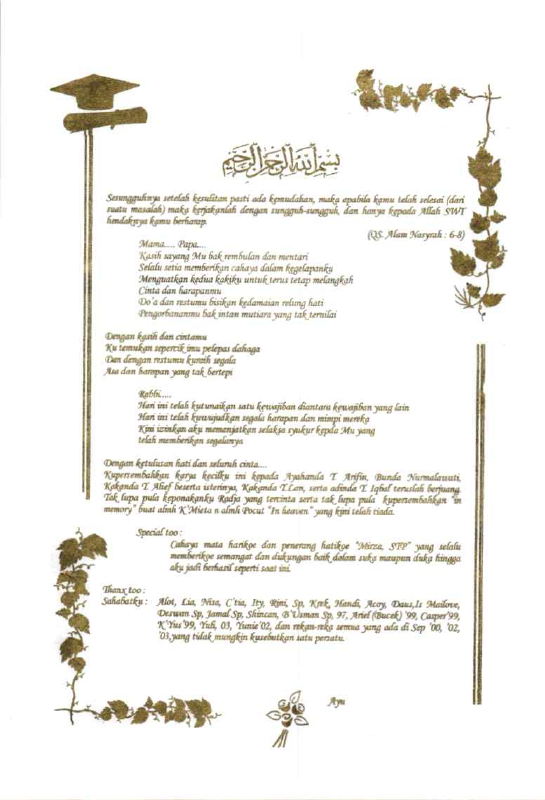 بسم الله الرحمن الرحيم
Sesungguhnya setelah kesulitan pasti ada kemudahan, maka apabila kamu telah selesai (dari
suatu masalah) maka kerjakanlah dengan sungguh-sungguh, dan hanya kepada Allah SWT
hendaknya kamu berharap.
(QS. Alam Nasyrah : 6-8)
Mama..... Papa....
Kasih sayang Mu bak rembulan dan mentari
Selalu setia memberikan cahaya dalam kegelapanku
Menguatkan kedua kakiku untuk terus tetap melangkah
Cinta dan harapanmu
Do'a dan restumu bisikan kedamaian relung hati
Pengorbananmu bak intan mutiara yang tak ternilai
Dengan kasih dan cintamu
Ku temukan sepercik ilmu pelepas dahaga
Dan dengan restumu kuraih segala
Asa dan harapan yang tak bertepi
Rabbi.....
Hari ini telah kutunaikan satu kewajiban diantara kewajiban yang lain
Hari ini telah kuwujudkan segala harapan dan mimpi mereka
Kini izinkan aku memanjatkan selaksa syukur kepda Mu yang
telah memberikan segalanya
Dengan ketulusan hati dan seluruh cinta....
Kupersembahkan karya kecilku ini kepada Ayahanda T. Arifin, Bunda Nurmalawati,
Kakanda T. Alief beserta isterinya, Kakanda T.Lan, serta adinda T. Iqbal teruslah berjuang.
Tak lupa pula keponakanku Radja yang tercinta serta tak lupa pula kupersembahkan "in
memory" buat almh K'Mieta n almh Pocut "In heaven" yang kini telah tiada.
Special too :
Cahaya mata harikoe dan penerang hatikoe "Mirza, STP" yang selalu
memberikoe semangat dan dukungan baik dalam suka maupun duka hingga
aku jadi berhasil seperti saat ini.
Thanx too :
Sahabatku : Alot, Lia, Nisa, C'tia, Ity, Rini, Sp, Handi, Acoy, Daus,Is Mailove,
Deswan Sp, Jamal Sp, Shincan, B'Usman Sp, 97, Ariel (Bucek) '99, Casper'99,
K'Yus'99, Yuli, 03, Yunie'02, dan rekan-reka semua yang ada di Sep '00, '02,
'03,yang tidak mungkin kusebutkan satu persatu.
Ayu